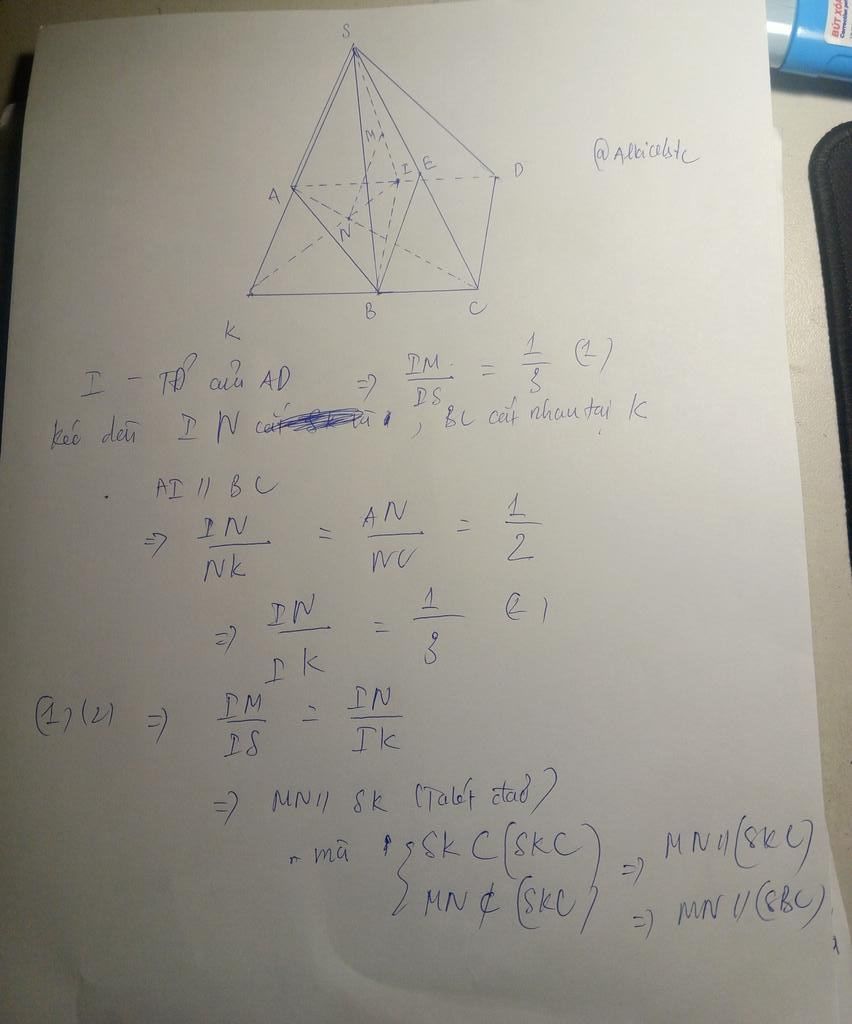 BÚT XÓA
S
M
E
I
D
@Alkicelstc
A
N
K
B
C
I - TĐ của AD => IM/IS = 1/3 (1)
kéo dài IN , BC cắt nhau tại K
AI // BC
=> IN/NK = AN/NC = 1/2
=> IN/IK = 1/3 (2)
(1)(2) => IM/IS = IN/IK
=> MN // SK (Talét đảo)
mà { SK ⊂ (SKC) => MN // (SKC)
MN ⊄ (SKC) => MN // (SBC)